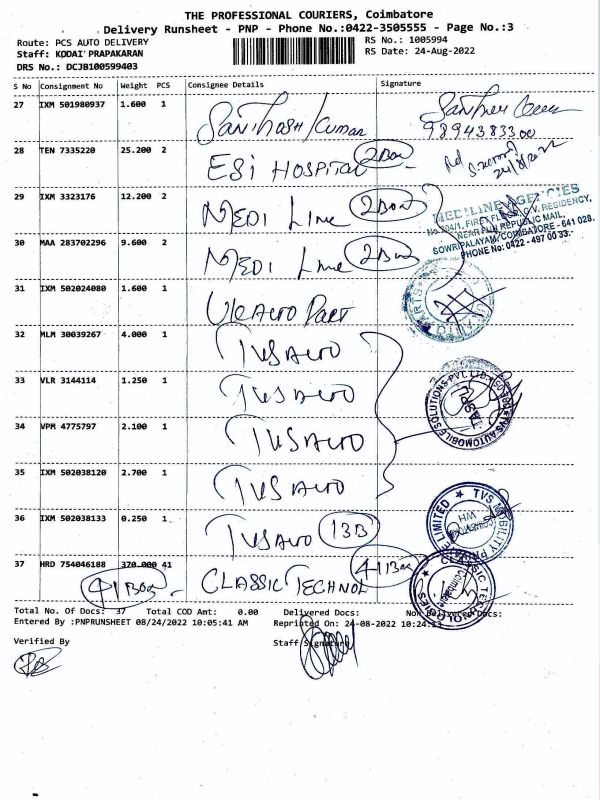 THE PROFESSIONAL COURIERS, Coimbatore
Delivery Runsheet - PNP - Phone No.:0422-3505555 - Page No.:3
Route: PCS AUTO DELIVERY
RS No.: 1005994
Staff: KODAI PRAPAKARAN
RS Date: 24-Aug-2022
DRS No.: DCJB100599403
S No Consignment No Weight PCS Consignee Details Signature
27 IXM 501980937 1.600 1 Santhosh Kumar
9894383300
28 TEN 7335220 25.200 2 ESI HOSPITAL 2 Box
24/8/2022
29 IXM 3323176 12.200 2 MEDI Line 2 Box
MEDILINE AGENCIES
No.204/1, FIRST FLOOR, G.V. RESIDENCY,
NEAR PUN REPUBLIC MAIL,
SOWRIPALAYAM, COIMBATORE - 641 028.
PHONE No: 0422 - 497 00 33
30 MAA 283702296 9.600 2 MEDI Line 2 Box
31 IXM 502024080 1.600 1 UK AUTO PART
32 MLM 30039267 4.000 1 TVS AUTO
33 VLR 3144114 1.250 1 TVS AUTO
34 VPM 4775797 2.100 1 TVS AUTO
TVS AUTOMOBILE SOLUTIONS PVT. LTD
35 IXM 502038120 2.700 1 TVS AUTO
36 IXM 502038133 0.250 1 TVS AUTO 13B
TVS MOBILITY PRIVATE LIMITED
37 HRD 754046188 370.000 41 CLASSIC TECHNOL 41 Box
41 Box
CLASSIC TECHNOLOGIES
Coimbatore
Total No. Of Docs: 37 Total COD Amt: 0.00 Delivered Docs: Non Delivered Docs:
Entered By :PNPRUNSHEET 08/24/2022 10:05:41 AM Reprinted On: 24-08-2022 10:24:13
Verified By Staff Signature